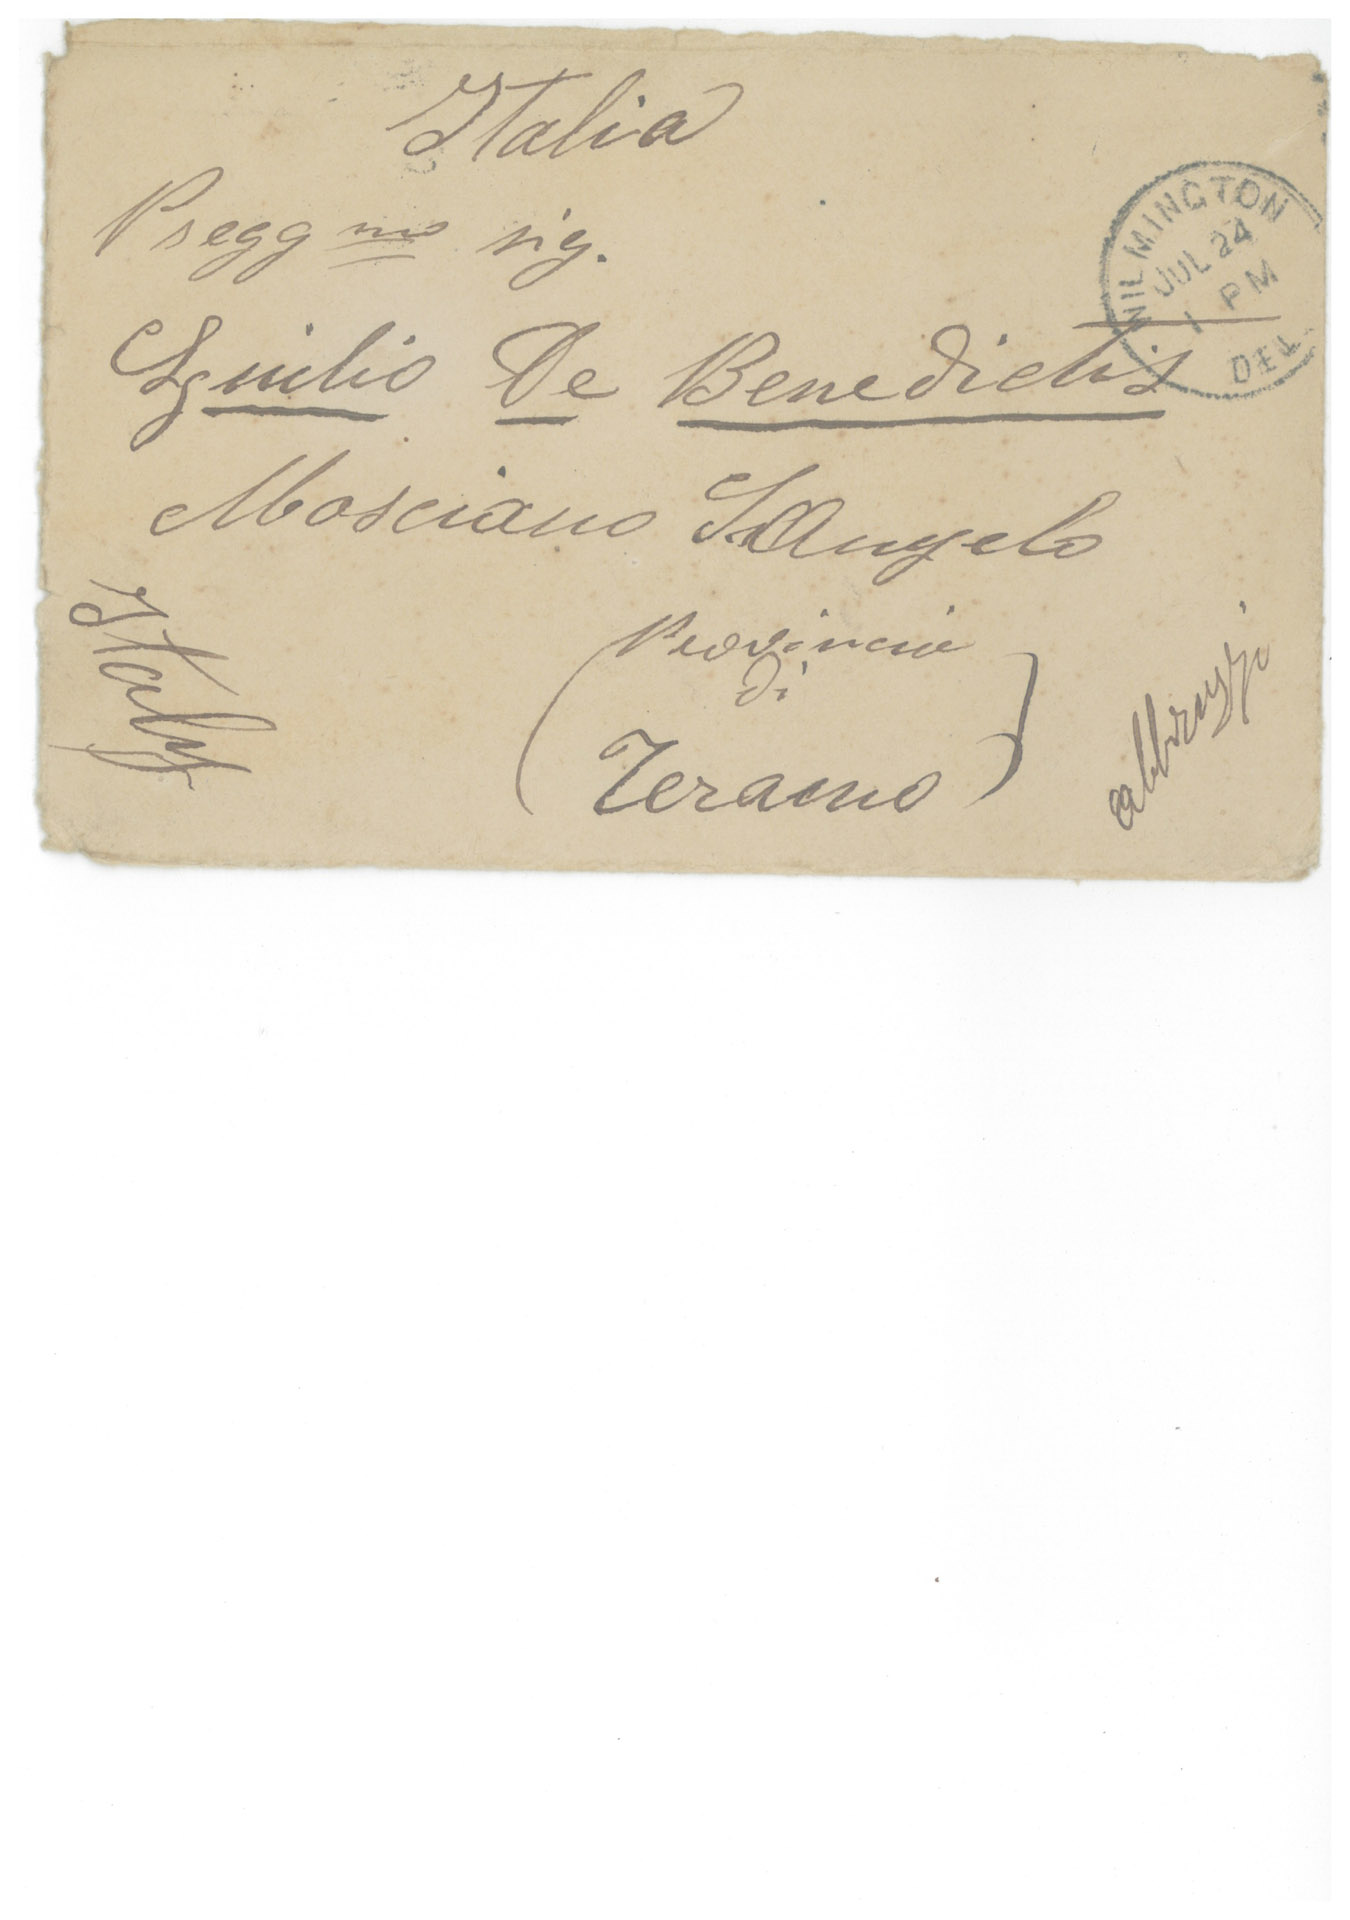 Italia
Pregg mo sig.
De Benedictis
Mosciano S. Angelo
Provincia
di
(Teramo)
abbruzzi
Italy
WILMINGTON
JUL 24
1 PM
DEL.